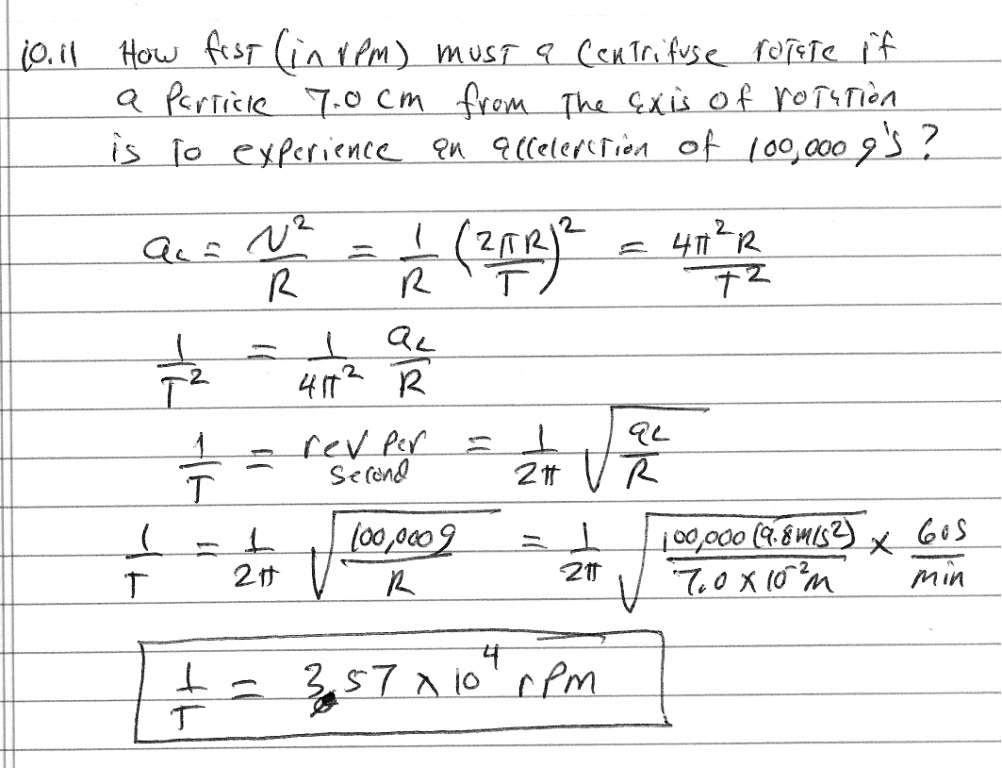 10.11 How fast (in rpm) must a centrifuse rotate if
a particle 7.0 cm from the axis of rotation
is to experience an acceleration of 100,000 g's?
a_c = v²/R = 1/R (2πR/T)² = 4π²R/T²
1/T² = 1/4π² a_c/R
1/T = rev per second = 1/2π √(a_c/R)
1/T = 1/2π √(100,000g/R) = 1/2π √(100,000(9.8m/s²)/7.0 x 10⁻²m) x 60s/min
1/T = 3.57 x 10⁴ rpm